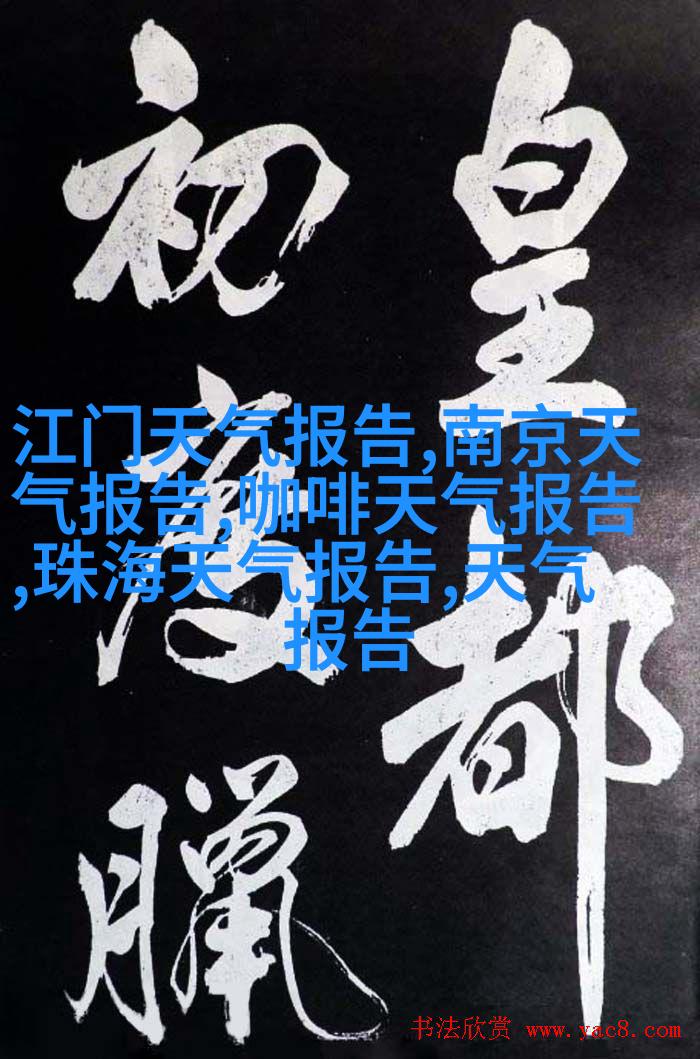 皇都
初度臘
江门天气报告,南京天
气报告,咖啡天气报告
,珠海天气报告,天气
报告
书法欣赏 www.yac8.com